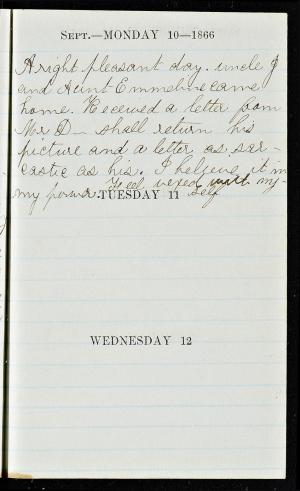 SEPT.—MONDAY 10—1866
A right pleasant day. uncle J
and Aunt Emmeline came
home. Received a letter from
Mr D— shall return his
picture and a letter as sar-
castic as his. I beleive it in
my power. Feel vexed with my-
self
TUESDAY 11
WEDNESDAY 12